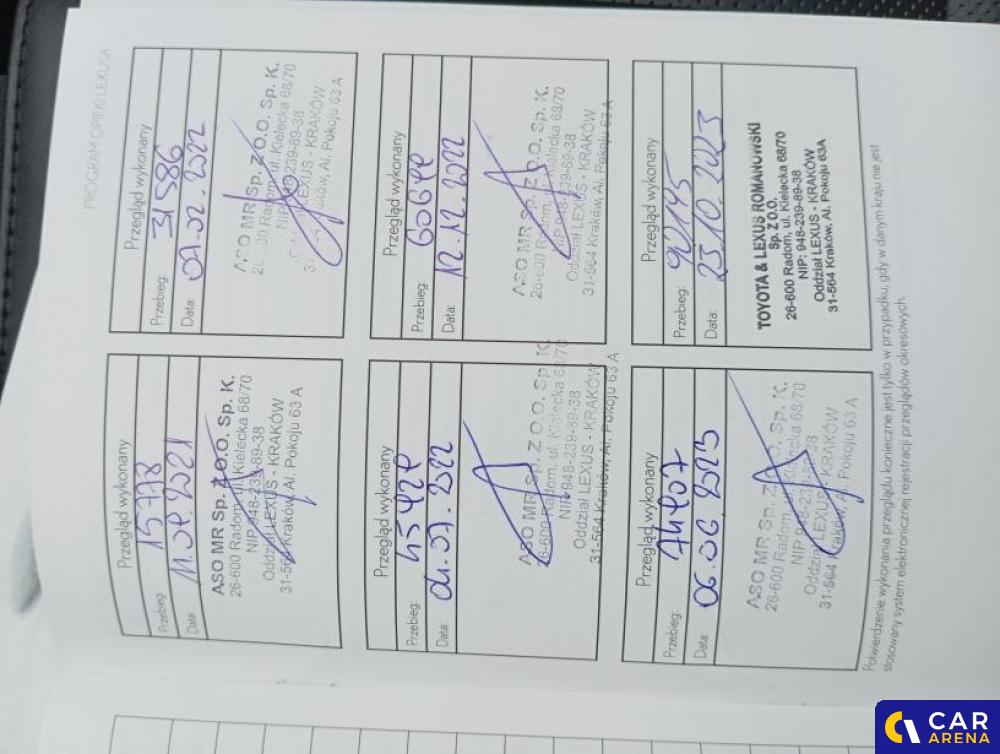 PROGRAM OPIEKI LEXUSA
Przegląd wykonany
Przebieg: 15778
Data:
ASO MR Sp. Z O.O. Sp. K.
26-600 Radom, ul. Kielecka 68/70
NIP 948-239-89-38
Oddział LEXUS - KRAKÓW
31-564 Kraków, Al. Pokoju 63 A
Przegląd wykonany
Przebieg: 31586
Data: 07.02.2022
ASO MR Sp. Z O.O. Sp. K.
ul. Kielecka 68/70
NIP 239-89-38
LEXUS - KRAKÓW
Al. Pokoju 63 A
Przegląd wykonany
Przebieg:
Data: 04.07.2022
ASO MR Sp. Z O.O. Sp. K.
26-600 Radom, ul. Kielecka 68/70
NIP 948-239-89-38
Oddział LEXUS - KRAKÓW
31-564 Kraków, Al. Pokoju 63 A
Przegląd wykonany
Przebieg:
Data: 12.12.2022
ASO MR Sp. Z O.O. Sp. K.
26-600 Radom, ul. Kielecka 68/70
NIP 948-239-89-38
Oddział LEXUS - KRAKÓW
31-564 Kraków, Al. Pokoju 63 A
Przegląd wykonany
Przebieg: 74407
Data: 06.06.2023
ASO MR Sp. Z O.O. Sp. K.
26-600 Radom, ul. Kielecka 68/70
NIP 948-239-89-38
Oddział LEXUS - KRAKÓW
31-564 Kraków, Al. Pokoju 63 A
Przegląd wykonany
Przebieg: 90145
Data: 25.10.2023
TOYOTA & LEXUS ROMANOWSKI
Sp. Z O.O.
26-600 Radom, ul. Kielecka 68/70
NIP: 948-239-89-38
Oddział LEXUS - KRAKÓW
31-564 Kraków, Al. Pokoju 63A
Potwierdzenie wykonania przeglądu konieczne jest tylko w przypadku, gdy w danym kraju nie jest
stosowany system elektronicznej rejestracji przeglądów okresowych.
CAR
ARENA